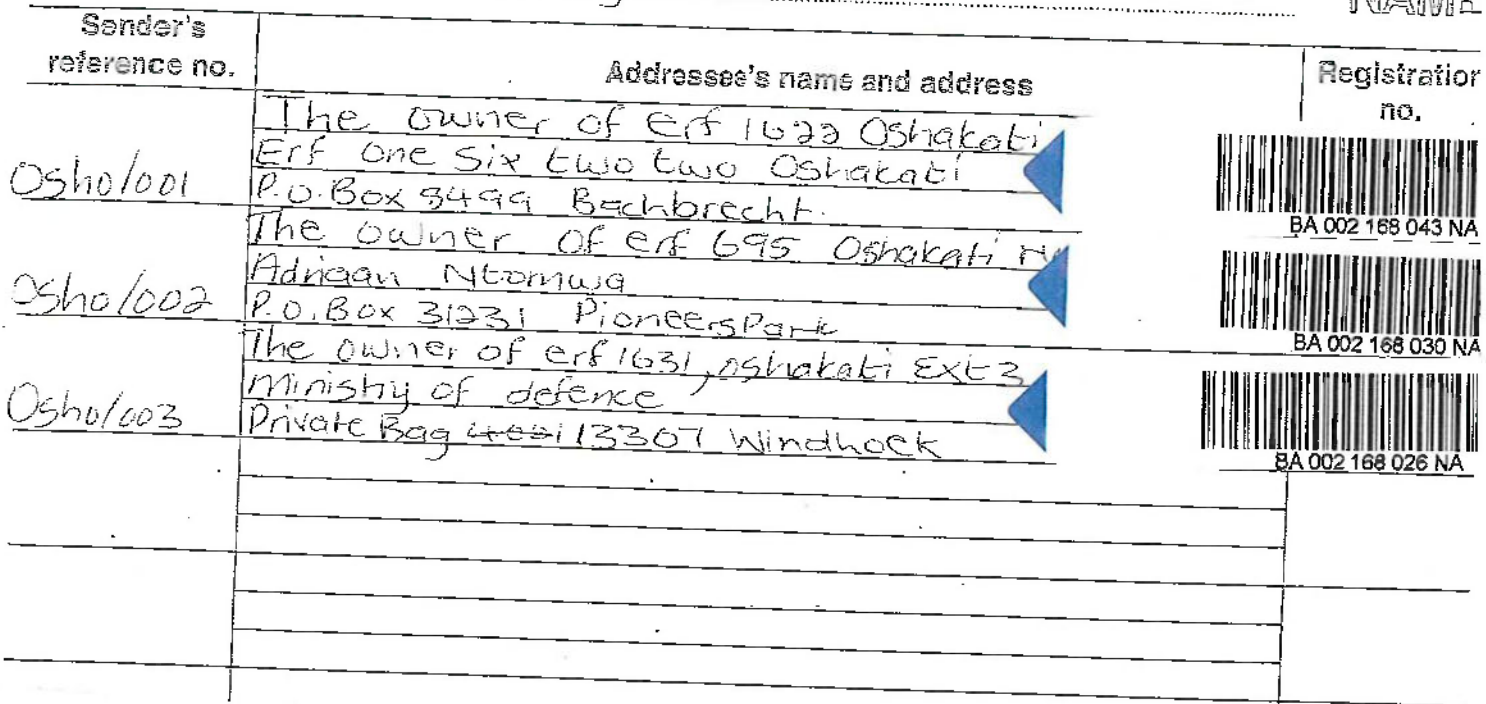 NAME
Sender's
reference no.
Addressee's name and address
Registration
no.
The owner of erf 1622 Oshakati
Erf one Six two two Oshakati
Osho/001
P.O. Box 8499 Bachbrecht.
BA 002 168 043 NA
The owner of erf 695 Oshakati
Adriaan Ntomwa
Osho/002
P.O. Box 31231 PioneersPark
BA 002 168 030 NA
The owner of erf 1631, oshakati Ext 3
Ministry of defence
Osho/003
Private Bag 13307 Windhoek
BA 002 168 026 NA